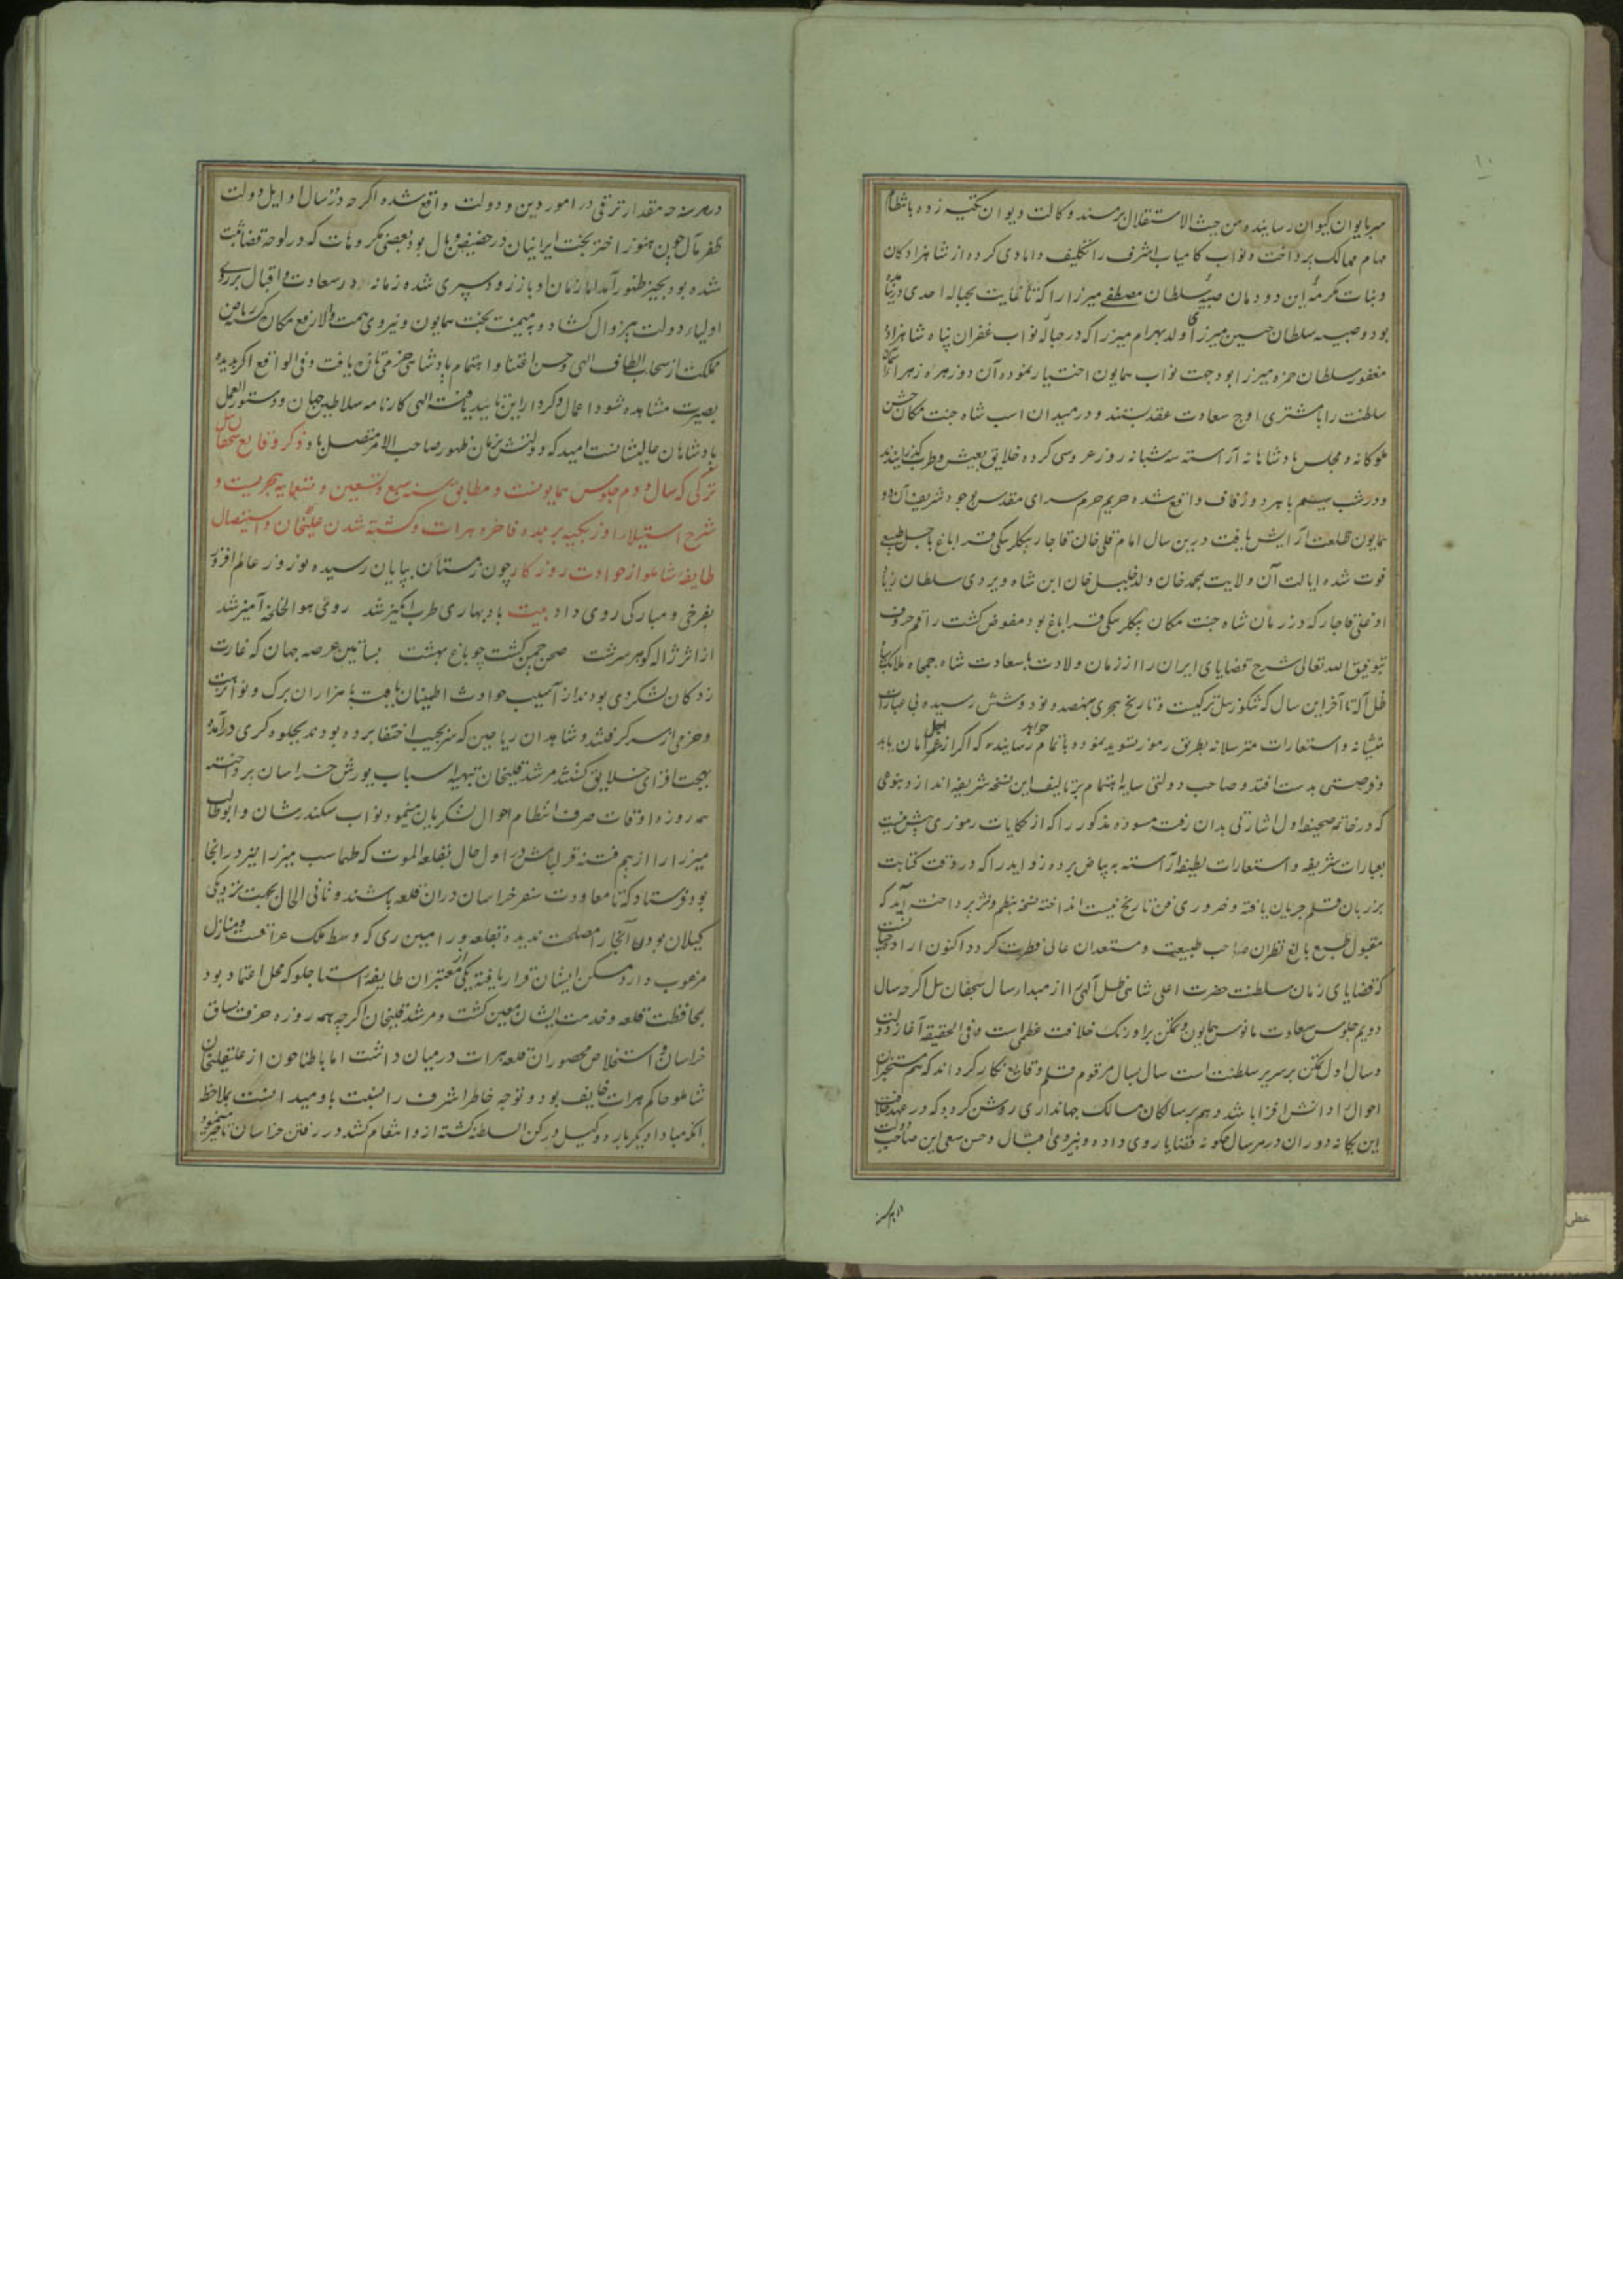 ۱۰
سر بایوان کیوان رسانیده من حیث الاستقلال بر مسند وکالت دیوان تکیه زده بانتظام
مهام ممالک پرداخت و نواب کامیاب اشرف را تکلیف دامادی کرده از شاهزادکان
و بنات مکرمه این دودمان صبیه سلطان مصطفی میرزا را که تا غایت بحباله احدی در نیامده
بود و صبیه سلطان حسین میرزای ولد بهرام میرزا که در حباله نواب غفران پناه شاهزاده
مغفور سلطان حمزه میرزا بود جهت نواب همایون اختیار نموده آن دو زهره زهرا
سلطنت را با مشتری اوج سعادت عقد بستند و در میدان اسب شاه جنت مکان جشن
ملوکانه و مجلس پادشاهانه آراسته سه شبانه روز عروسی کرده خلایق بعیش و طرب گذرانیدند
و در شب سیم با هر دو زفاف واقع شده حریم حرم سرای مقدس بوجود شریف آن دو
همایون طلعت آرایش یافت درین سال امام قلی خان قاجار بیکلربیکی قراباغ باجل طبیعی
فوت شده ایالت آن ولایت بمحمد خان ولد خلیل خان ابن شاه ویردی سلطان زیاد
اوغلی قاجار که در زمان شاه جنت مکان بیکلربیکی قراباغ بود مفوض کشت راقم حروف
بتوفیق الله تعالی شرح قضایای ایران را از زمان ولادت با سعادت شاه جمجاه ملایک سپاه
ظل اله تا آخر این سال که تنکوزئیل ترکیست و تاریخ هجری بنهصد و نود و شش رسیده بی عبارات
منشیانه و استعارات مترسلانه بطریق رموز بتسوید نموده باتمام رسانیده که اکر از اجل امان یابد
و فرصتی بدست افتد و صاحب دولتی سایه اهتمام بر تالیف این نسخه شریفه اندازد بنوعی
که در خاتمه صحیفه اول اشارتی بدان رفته مسوده مذکور را که از حکایات رموزی بیش نیست
بعبارات شریفه و استعارات لطیفه آراسته به بیاض برده زواید را که در وقت کتابت
بر زبان قلم جریان یافته و ضروری فن تاریخ نیست انداخته نسخه بنظم و نثر پرداخته آید که
مقبول طبع بالغ نظران صاحب طبیعت و مستعدان عالی فطرت کردد اکنون اراده چنانست
که قضایای زمان سلطنت حضرت اعلی شاهی ظل آلهی را از مبداء سال سیچقان ئیل اکرچه سال
دویم جلوس سعادت مانوس همایون و تمکن بر اورنک خلافت عظمی است و فی الحقیقه آغاز دولت
و سال اول تمکن بر سریر سلطنت است سال بسال مرقوم قلم وقایع نکار کرداند که هم مستخبران
احوال را دانش افزا باشد و هم بر سالکان مسالک جهانداری روشن کردد که در عهد خلافت
این یکانه دوران در هر سال چکونه قضایا روی داده و بنیروی اقبال و حسن سعی این صاحب دولت
در هر سنه
در هر سنه چه مقدار ترقی در امور دین و دولت واقع شده اکرچه در سال اوایل دولت
ظفر مآل چون هنوز اختر بخت ایرانیان در حضیض وبال بود بعضی مکروهات که در لوحه قضا ثبت
شده بود بحیز ظهور آمد اما زمان ادبار زود سپری شده زمانه در سعادت و اقبال بر روی
اولیاء دولت بیزوال کشاد و به میمنت بخت همایون و نیروی همت والا رفع مکان ریاض
مملکت از سحاب الطاف الهی و حسن اعتنا و اهتمام پادشاهی خرمی تازه یافت و فی الواقع اکر بدیده
بصیرت مشاهده شود اعمال و کردار این تایید یافته الهی کارنامه سلاطین جهان و دستور العمل
پادشاهان عالیشانست امید که دولتش بزمان ظهور صاحب الامر متصل باد ذکر وقایع سیچقان ئیل
ترکی که سال دوم جلوس همایونست و مطابق سنه سبع و تسعین و تسعمایه هجریست و
شرح استیلاء اوزبکیه بر بلده فاخره هرات و کشته شدن علیقلیخان و استیصال
طایفه شاملو از حوادث روزکار چون زمستان بپایان رسیده نوروز عالم افروز
بفرخی و مبارکی روی داد بیت باد بهاری طرب انکیز شد روی هوا لخلخه آمیز شد
از اثر ژاله کوهر سرشت صحن چمن کشت چو باغ بهشت بساتین عرصه جهان که غارت
زدکان لشکر دی بودند از آسیب حوادث اطمینان یافته با هزاران برک و نوا
و خرمی از سر کرفتند و شاهدان ریاحین که سر بجیب اختفا برده بودند بجلوه کری درآمده
بهجت افزای خلایق کشتند مرشد قلیخان تهیه اسباب یورش خراسان پرداخته
همه روزه اوقات صرف انتظام احوال لشکریان مینمود نواب سکندر شان و ابوطالب
میرزا را از بیم فتنه قزلباش در اول حال بقلعه الموت که طهماسب میرزا نیز در انجا
بود فرستاد که تا معاودت سفر خراسان دران قلعه باشند و ثانی الحال بجهت نزدیکی
کیلان بودن آنجا را مصلحت ندیده بقلعه ورامین ری که وسط ملک عراقست و منازل
مرغوب دارد مسکن ایشان قرار یافته یکی از معتبران طایفه استاجلو که محل اعتماد بود
بمحافظت قلعه و خدمت ایشان معین کشت و مرشد قلیخان اکرچه همه روزه حرف یساق
خراسان و استخلاص محصوران قلعه هرات در میان داشت اما باطنا چون از علیقلیخان
شاملو حاکم هرات خایف بود و توجه خاطر اشرف را نسبت باو میدانست بملاحظه
آنکه مبادا دیکر باره وکیل و رکن السلطنه کشته ازو انتقام کشد در رفتن خراسان تاخیر مینمود
خطی